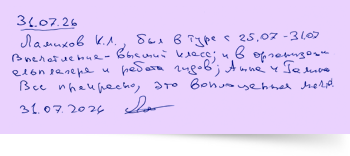 31.07.26
Лалихов К.Л., был в туре с 25.07-31.07
Впечатление - высший класс; и в организации
и работа гидов; Анна и Галина
Все прекрасно, это воплощенная мечта.
31.07.2026